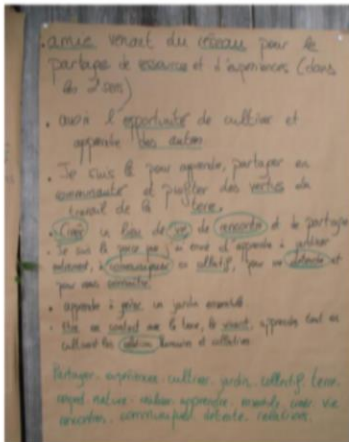 . amie venait du réseau pour le
partage de essences et d'expériences (dans
les 2 sens)
. avoir l'opportunité de cultiver et
apprendre des autres
. Je suis là pour apprendre, partager en
communauté et profiter des vertus du
travail de la terre.
. Créer un lieu de vie de rencontre et de partage
. Je suis là parce que j'ai envie d'apprendre à jardiner
, à communiquer en collectif, pour me détendre et
pour nous connaître
. apprendre à gérer un jardin ensemble
. Etre en contact avec la terre, le vivant, apprendre tout en
cultivant les relations humaines et collectives
Partager. expériences. cultiver. jardin. collectif. terre.
respect. nature. apprendre. ensemble. créer. vie
rencontres. communiquer. détente. relations.